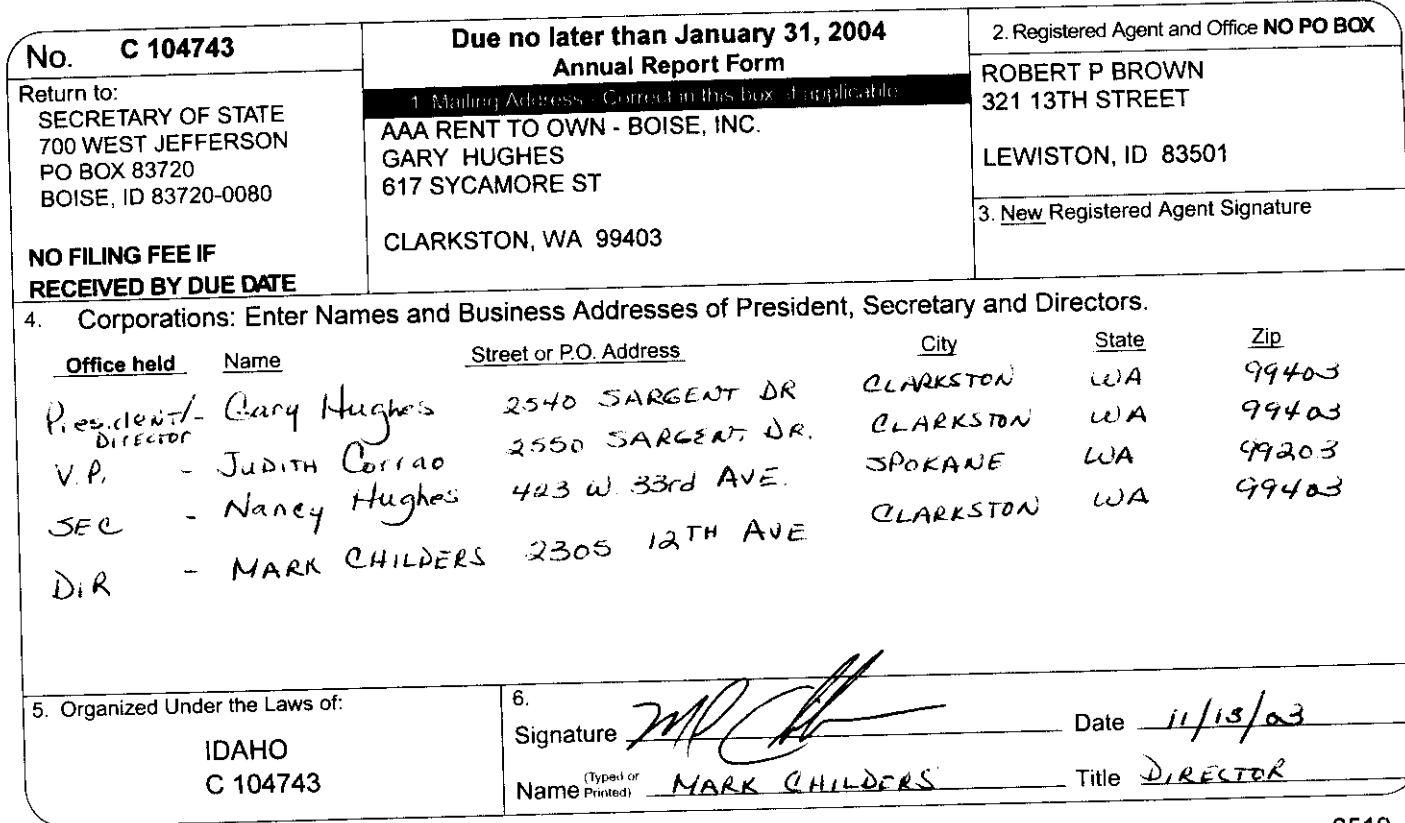 No. C 104743
Return to:
SECRETARY OF STATE
700 WEST JEFFERSON
PO BOX 83720
BOISE, ID 83720-0080
NO FILING FEE IF
RECEIVED BY DUE DATE
Due no later than January 31, 2004
Annual Report Form
1. Mailing Address - Correct in this box if applicable
AAA RENT TO OWN - BOISE, INC.
GARY HUGHES
617 SYCAMORE ST
CLARKSTON, WA 99403
2. Registered Agent and Office NO PO BOX
ROBERT P BROWN
321 13TH STREET
LEWISTON, ID 83501
3. New Registered Agent Signature
4. Corporations: Enter Names and Business Addresses of President, Secretary and Directors.
Office held Name Street or P.O. Address City State Zip
President/- Gary Hughes 2540 SARGENT DR CLARKSTON WA 99403
DIRECTOR
V.P. - JUDITH Corrao 2550 SARGENT DR. CLARKSTON WA 99403
SEC - Nancy Hughes 423 W. 33rd AVE. SPOKANE WA 99203
DiR - MARK CHILDERS 2305 12TH AVE CLARKSTON WA 99403
5. Organized Under the Laws of:
IDAHO
C 104743
6.
Signature Date 11/13/03
Name (Typed or Printed) MARK CHILDERS Title DIRECTOR